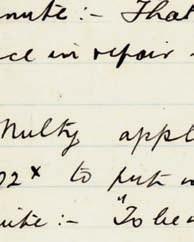 nute:- That
ce in repair
Nulty appl
02x to put
ute:- "To be